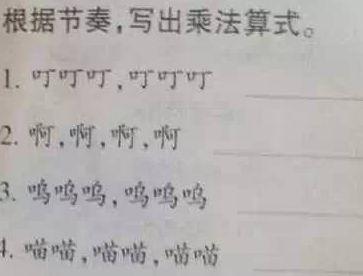 根据节奏,写出乘法算式。
1. 叮叮叮,叮叮叮
2. 啊,啊,啊,啊
3. 呜呜呜,呜呜呜
4. 喵喵,喵喵,喵喵